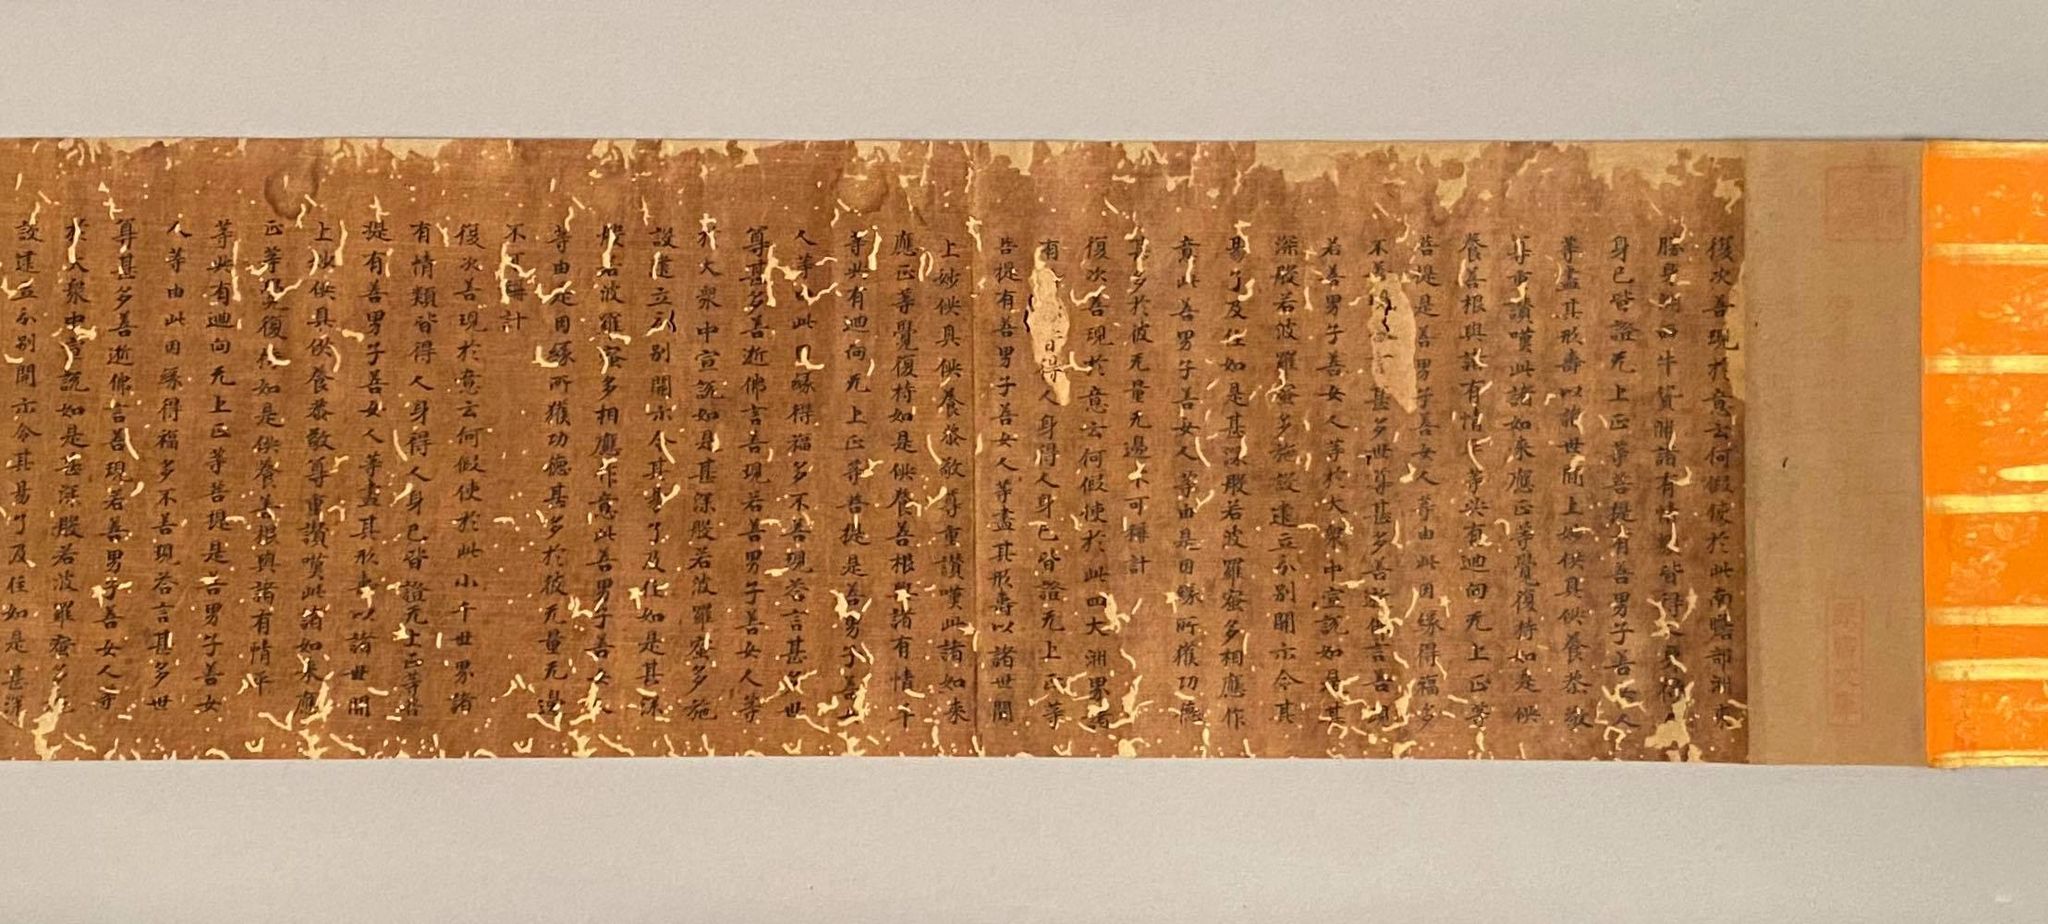 復次善現於意云何假使於此南贍部洲東
勝身洲西牛貨洲諸有情類皆得人身得人
身已皆證无上正等菩提有善男子善女人
等盡其形壽以諸世間上妙供具供養恭敬
尊重讚嘆此諸如來應正等覺復持如是供
養善根與諸有情平等共有迴向无上正等
菩提是善男子善女人等由此因緣得福多
不善現答言甚多世尊甚多善逝佛言善現
若善男子善女人等於大眾中宣說如是甚
深般若波羅蜜多施設建立分別開示令其
易了及住如是甚深般若波羅蜜多相應作
意此善男子善女人等由是因緣所獲功德
甚多於彼无量无邊不可稱計
復次善現於意云何假使於此四大洲界諸
有 皆得人身得人身已皆證无上正等
菩提有善男子善女人等盡其形壽以諸世間
上妙供具供養恭敬尊重讚嘆此諸如來
應正等覺復持如是供養善根與諸有情平
等共有迴向无上正等菩提是善男子善女
人等由此因緣得福多不善現答言甚多世
尊甚多善逝佛言善現若善男子善女人等
於大眾中宣說如是甚深般若波羅蜜多施
設建立分別開示令其易了及住如是甚深
般若波羅蜜多相應作意此善男子善女人
等由是因緣所獲功德甚多於彼无量无邊
不可稱計
復次善現於意云何假使於此小千世界諸
有情類皆得人身得人身已皆證无上正等菩
提有善男子善女人等盡其形壽以諸世間
上妙供具供養恭敬尊重讚嘆此諸如來應
正等覺復持如是供養善根與諸有情平
等共有迴向无上正等菩提是善男子善女
人等由此因緣得福多不善現答言甚多世
尊甚多善逝佛言善現若善男子善女人等
於大眾中宣說如是甚深般若波羅蜜多施
設建立分別開示令其易了及住如是甚深